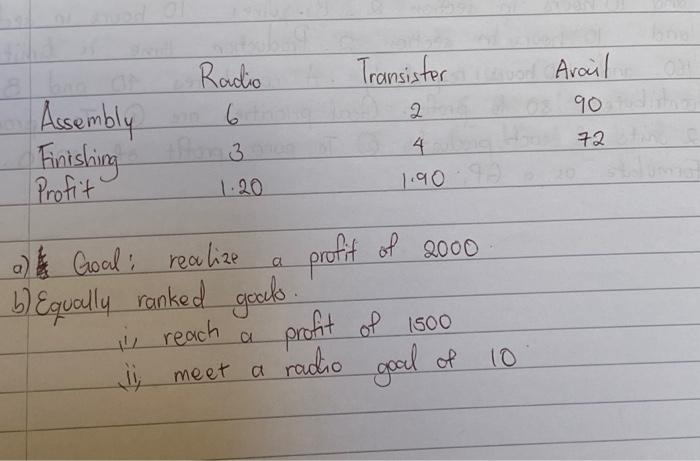 Radio Transister Avail
Assembly 6 2 90
Finishing 3 4 72
Profit 1.20 1.90
a) Goal: realize a profit of 2000.
b) Equally ranked goals.
i, reach a profit of 1500
ii, meet a radio goal of 10